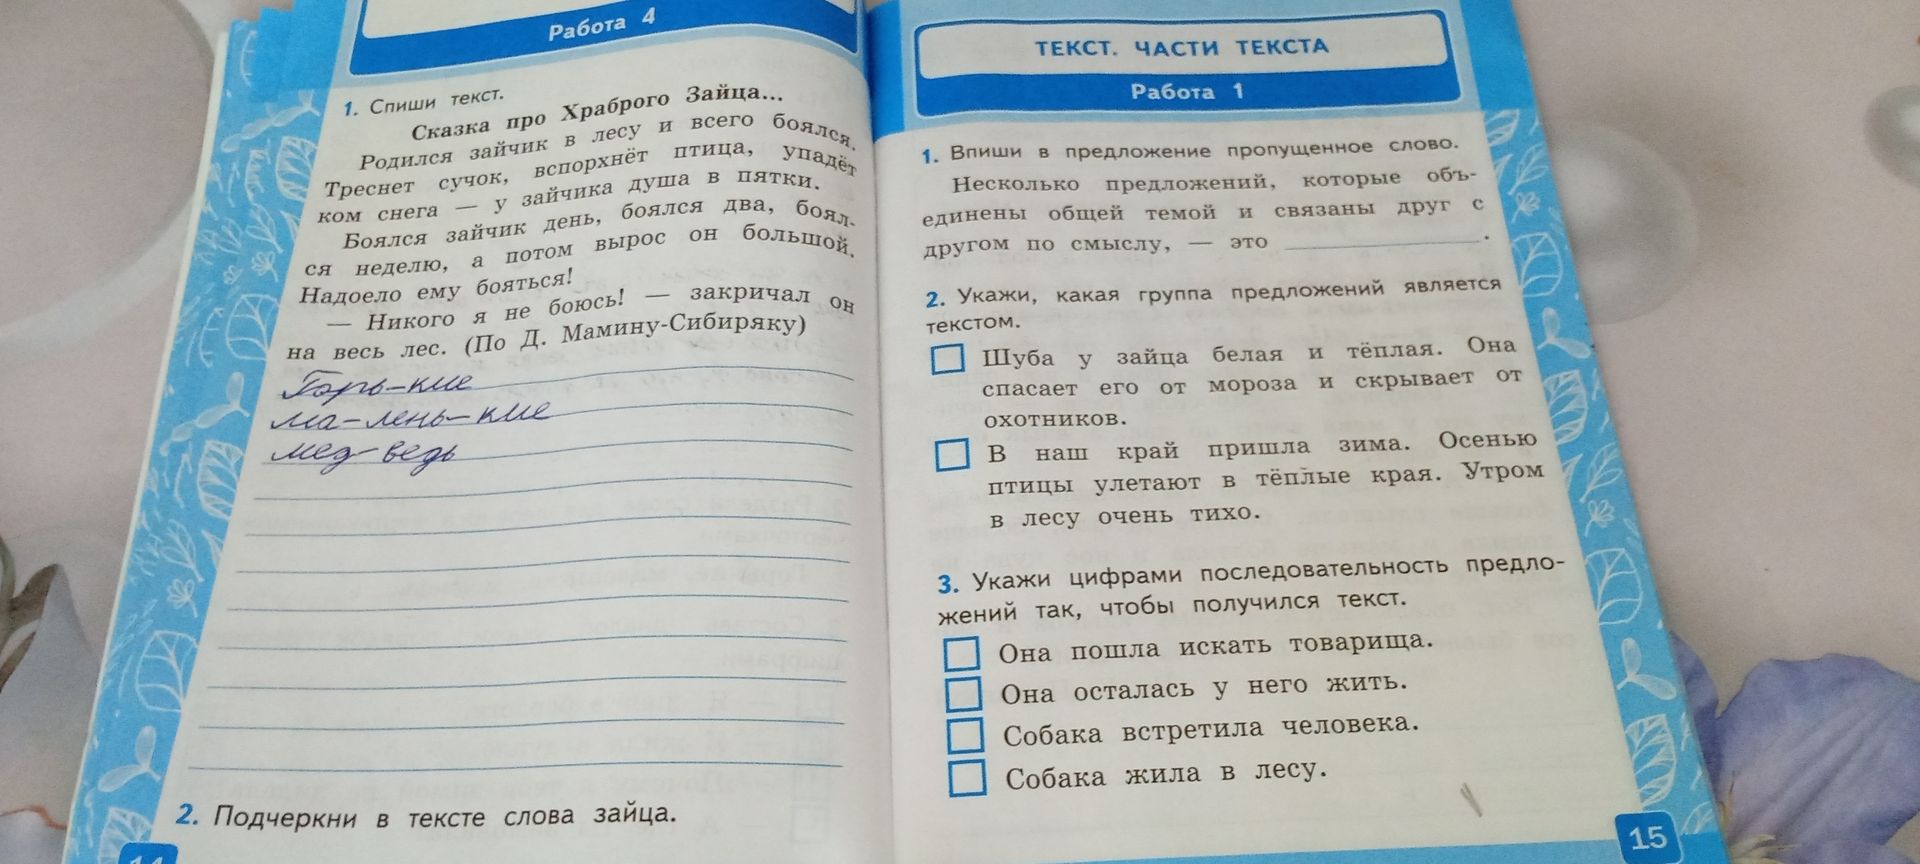 Работа 4
1. Спиши текст.
Сказка про Храброго Зайца...
Родился зайчик в лесу и всего боялся.
Треснет сучок, вспорхнёт птица, упадёт
ком снега — у зайчика душа в пятки.
Боялся зайчик день, боялся два, боял-
ся неделю, а потом вырос он большой.
Надоело ему бояться!
— Никого я не боюсь! — закричал он
на весь лес. (По Д. Мамину-Сибиряку)
Горь-кие
ма-лень-кие
мед-ведь
2. Подчеркни в тексте слова зайца.
14
ТЕКСТ. ЧАСТИ ТЕКСТА
Работа 1
1. Впиши в предложение пропущенное слово.
Несколько предложений, которые объ-
единены общей темой и связаны друг с
другом по смыслу, — это ____________.
2. Укажи, какая группа предложений является
текстом.
Шуба у зайца белая и тёплая. Она
спасает его от мороза и скрывает от
охотников.
В наш край пришла зима. Осенью
птицы улетают в тёплые края. Утром
в лесу очень тихо.
3. Укажи цифрами последовательность предло-
жений так, чтобы получился текст.
Она пошла искать товарища.
Она осталась у него жить.
Собака встретила человека.
Собака жила в лесу.
15